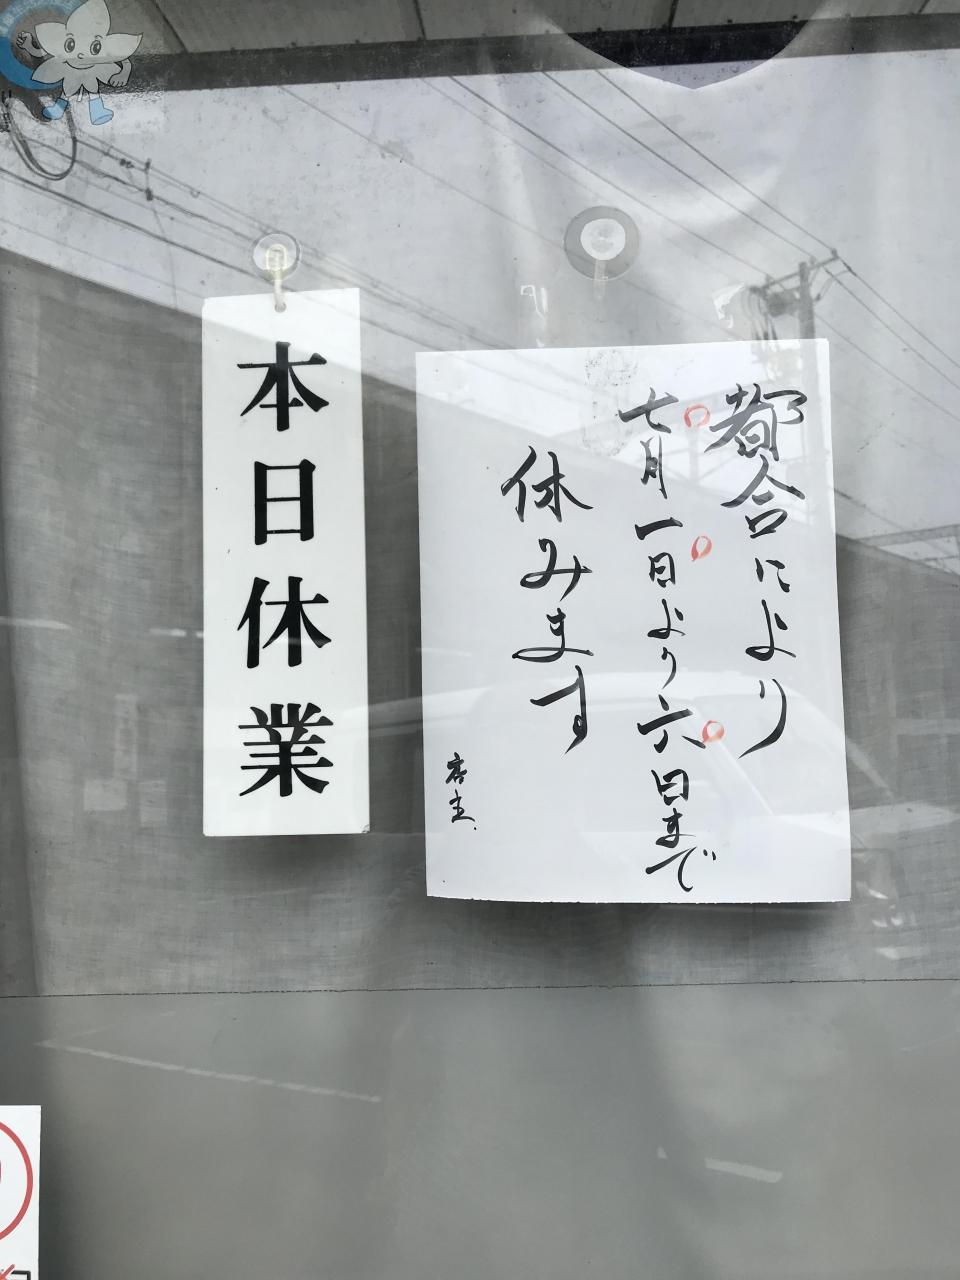 都合により
七月一日より六日まで
休みます
店主.
本日休業